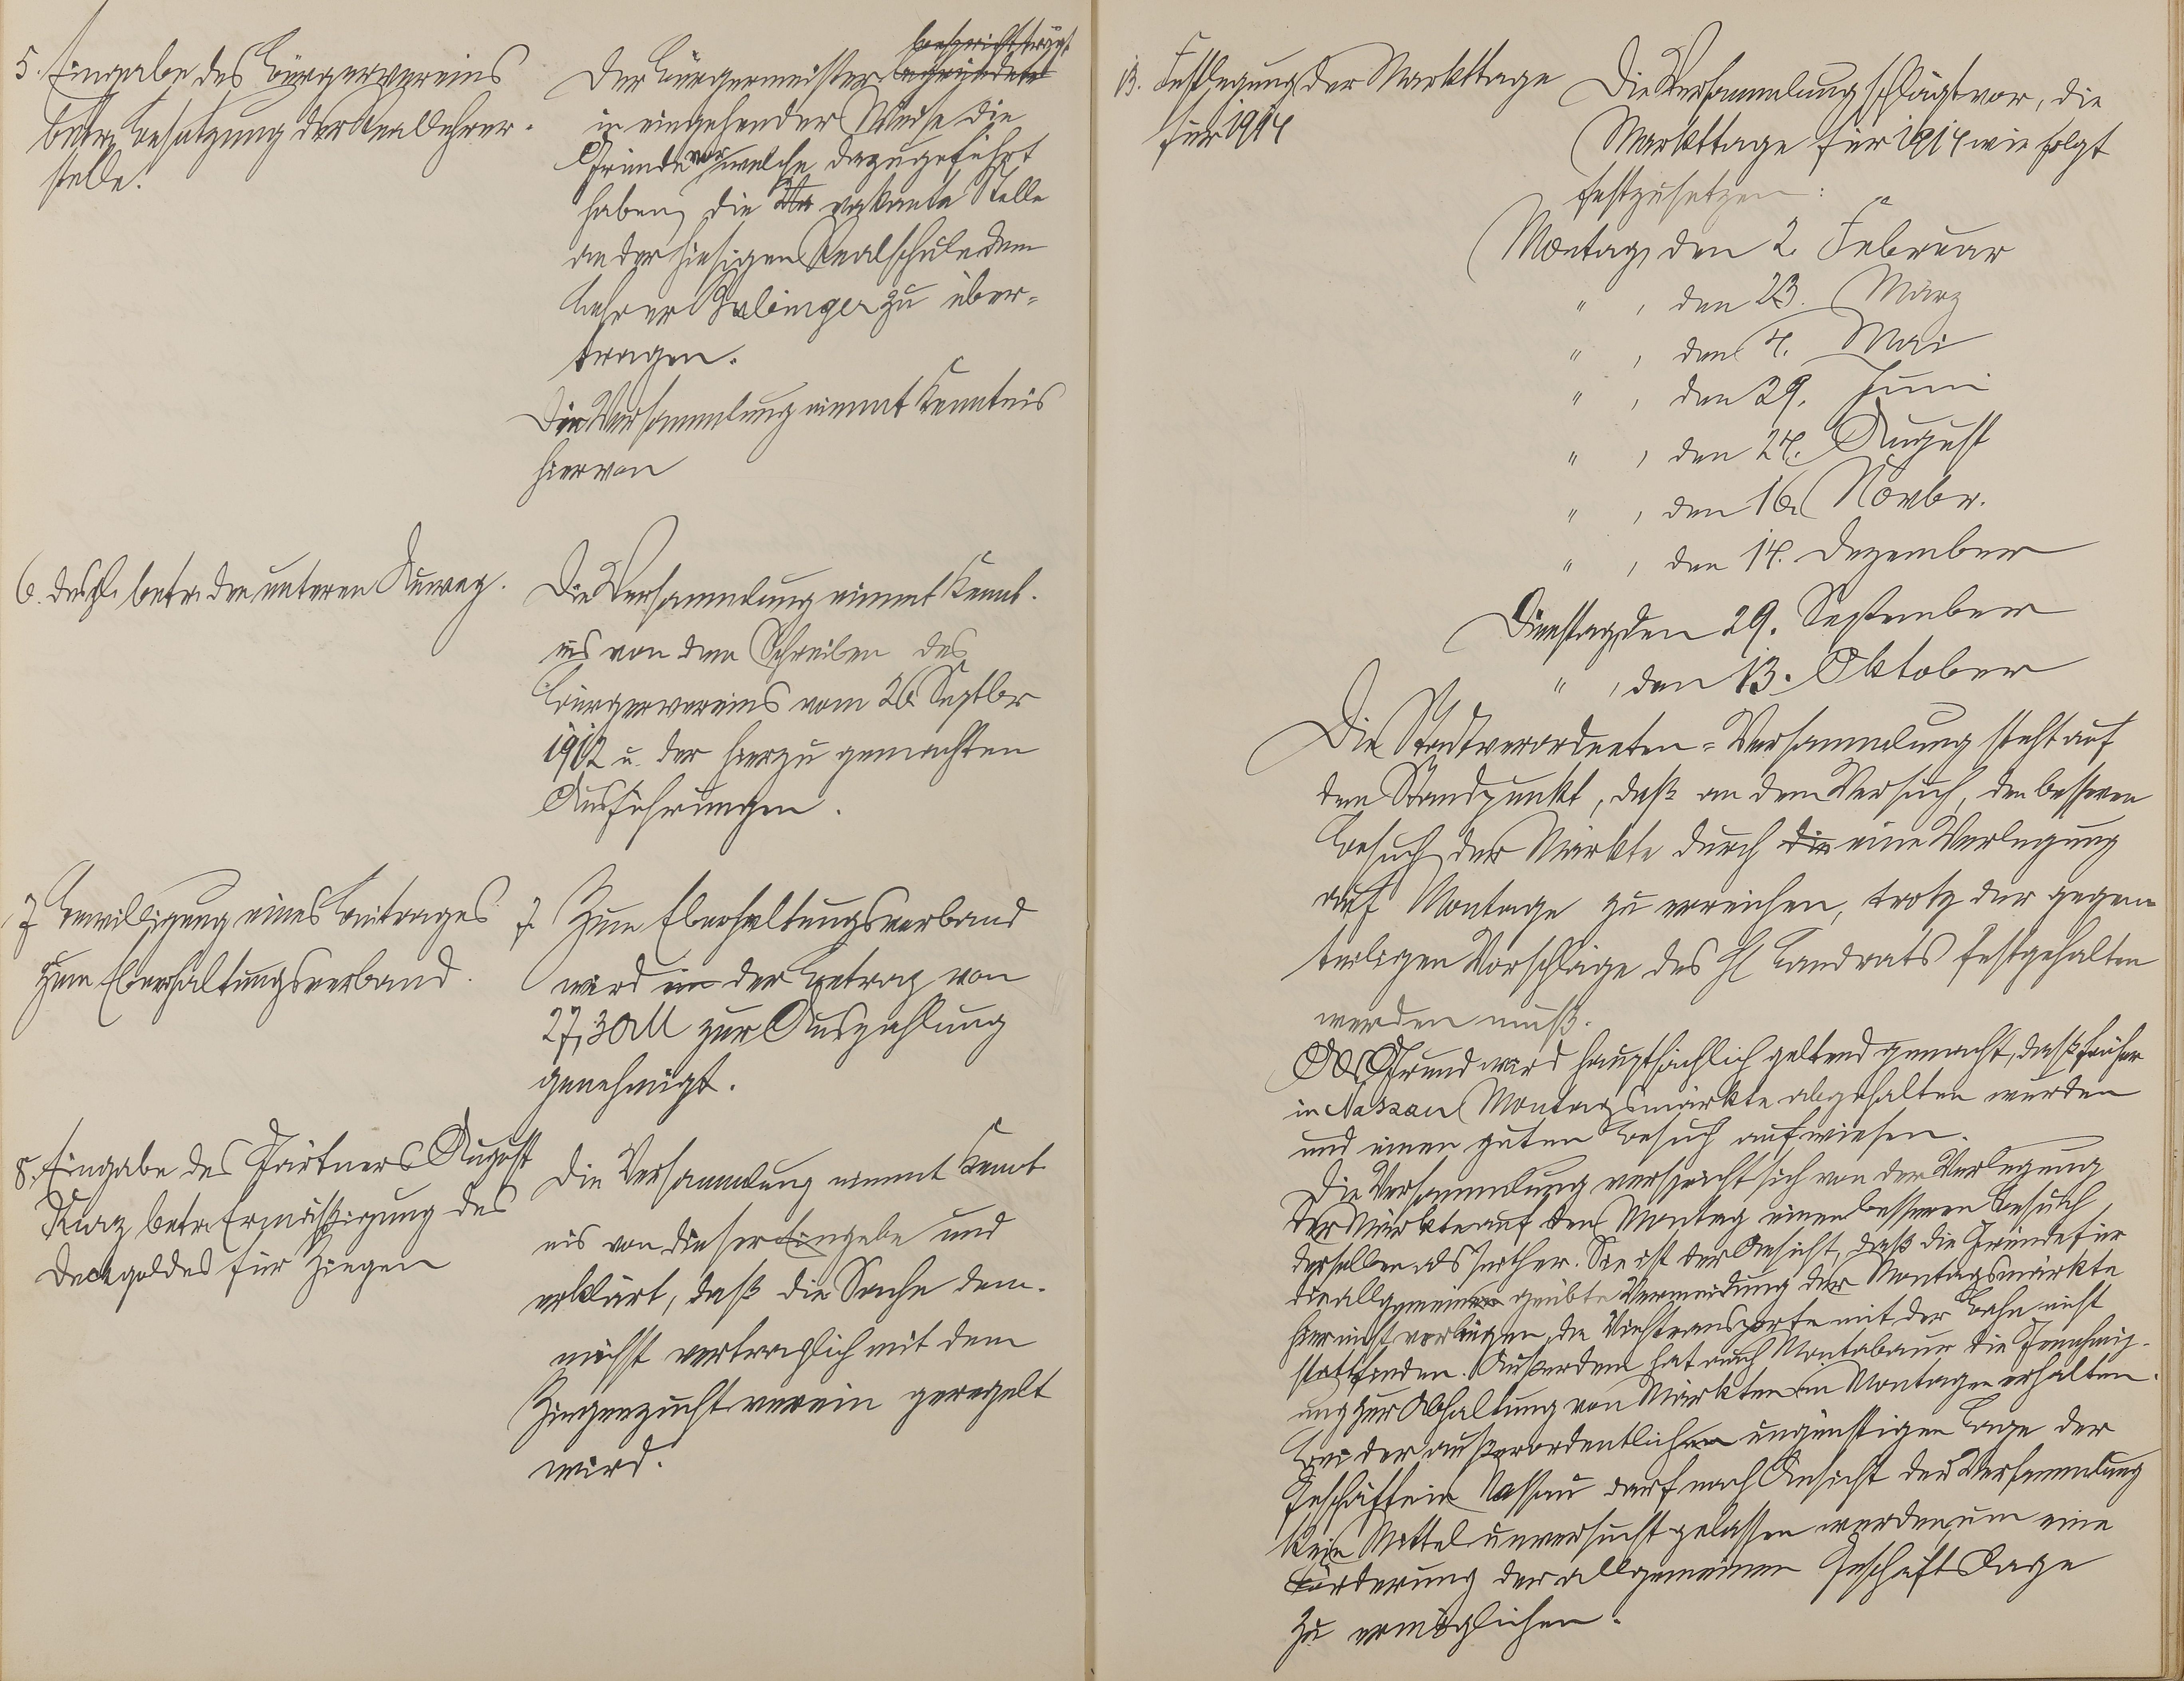 5. Eingabe des Bürgervereins
betr. Besetzung der Reallehrer-
stelle.
Der Bürgermeister begründete
in eingehender Weise die
Gründe vor, welche dazu geführt
haben, die vakante Stelle
an der hiesigen Realschule dem
Lehrer zu über-
tragen.
Die Versammlung nimmt Kenntnis
hiervon
6. desgl. betr. den unteren Auweg.
Die Versammlung nimmt Kennt-
nis von dem Schreiben des
Bürgervereins vom 26. Septbr
1912 u. der hierzu gemachten
Ausführungen.
7 Bewilligung eines Beitrages
zum Eberhaltungsverband.
7. Zum Eberhaltungsverband
wird der Betrag von
27,30 M zur Auszahlung
genehmigt.
8. Eingabe des Gärtners August
Kurz betr. Ermäßigung des
Deckgeldes für Ziegen
Die Versammlung nimmt Kennt
nis von dieser Eingabe und
erklärt, daß die Sache dem-
nächst vertraglich mit dem
Ziegenzuchtverein geregelt
wird.
13. Festlegung der Markttage
für 1914
Die Versammlung schlägt vor, die
Markttage für 1914 wie folgt
festzusetzen:
Montag, den 2. Februar
" , den 23. März
" , den 4. Mai
" , den 29. Juni
" , den 24. August
" , den 16. Novbr.
" , den 14. Dezember
Dienstag, den 29. September
" , den 13. Oktober
Die Stadtverordneten-Versammlung steht auf
dem Standpunkt, daß an dem Versuch, den besseren
Besuch der Märkte durch die eine Verlegung
auf Montage zu erreichen, trotz der gegen-
teiligen Vorschläge des H Landrats festgehalten
werden muß.
Als Grund wird hauptsächlich geltend gemacht, daß früher
in Nassau Montagsmärkte abgehalten wurden
und einen guten Besuch aufwiesen.
Die Versammlung verspricht sich von der Verlegung
der Märkte auf den Montag einen besseren Besuch
derselben als seither. Sie ist der Ansicht, daß die Gründe für
die allgemein geübte Vermeidung der Montagsmärkte
hier nicht vorliegen, da Viehtransporte mit der Bahn nicht
stattfinden. Außerdem hat auch Montabaur die Genehmig-
ung zur Abhaltung von Märkten an Montagen erhalten.
Bei der außerordentlich ungünstigen Lage der
Geschäfte in Nassau darf nach Ansicht der Versammlung
kein Mittel unversucht gelassen werden, um eine
Förderung der allgemeinen Geschäftslage
zu ermöglichen.